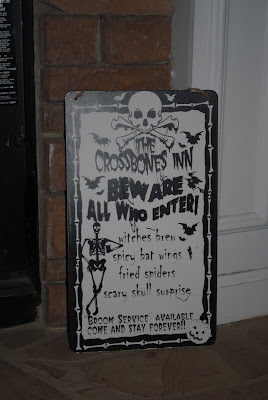 THE
CROSSBONES INN
BEWARE
ALL WHO ENTER!
witches brew
spicy bat wings
fried spiders
scary skull surprise
BROOM SERVICE AVAILABLE
COME AND STAY FOREVER!!